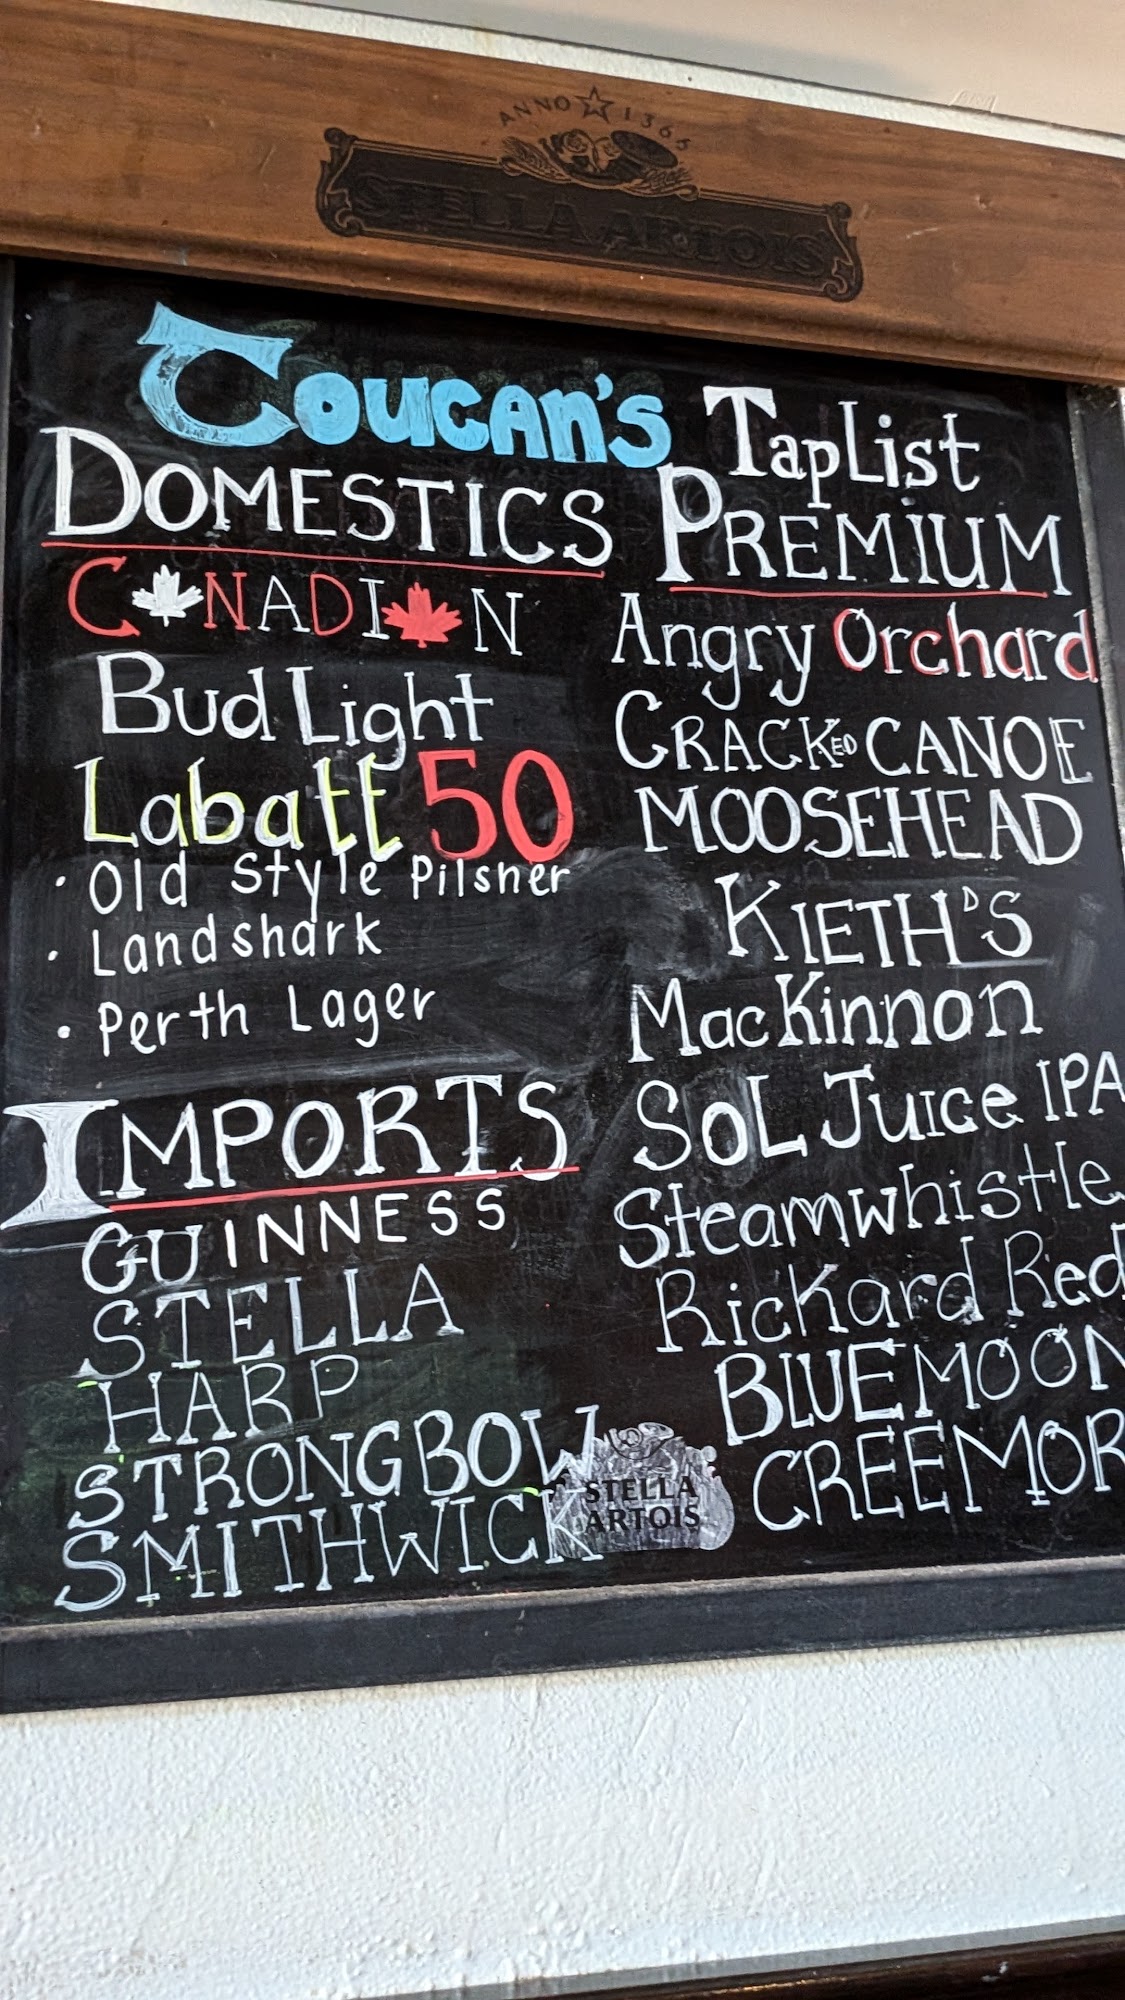 ANNO 1366
STELLA ARTOIS
Toucan's TapList
DOMESTICS
CANADIAN
Bud Light
Labatt 50
• Old Style Pilsner
• Landshark
• Perth Lager
IMPORTS
GUINNESS
STELLA
HARP
STRONGBOW
SMITHWICK
STELLA
ARTOIS
PREMIUM
Angry Orchard
CRACKED CANOE
MOOSEHEAD
KIETH'S
MacKinnon
SOL JUICE IPA
Steamwhistle
Rickard Red
BLUEMOON
CREEMOR